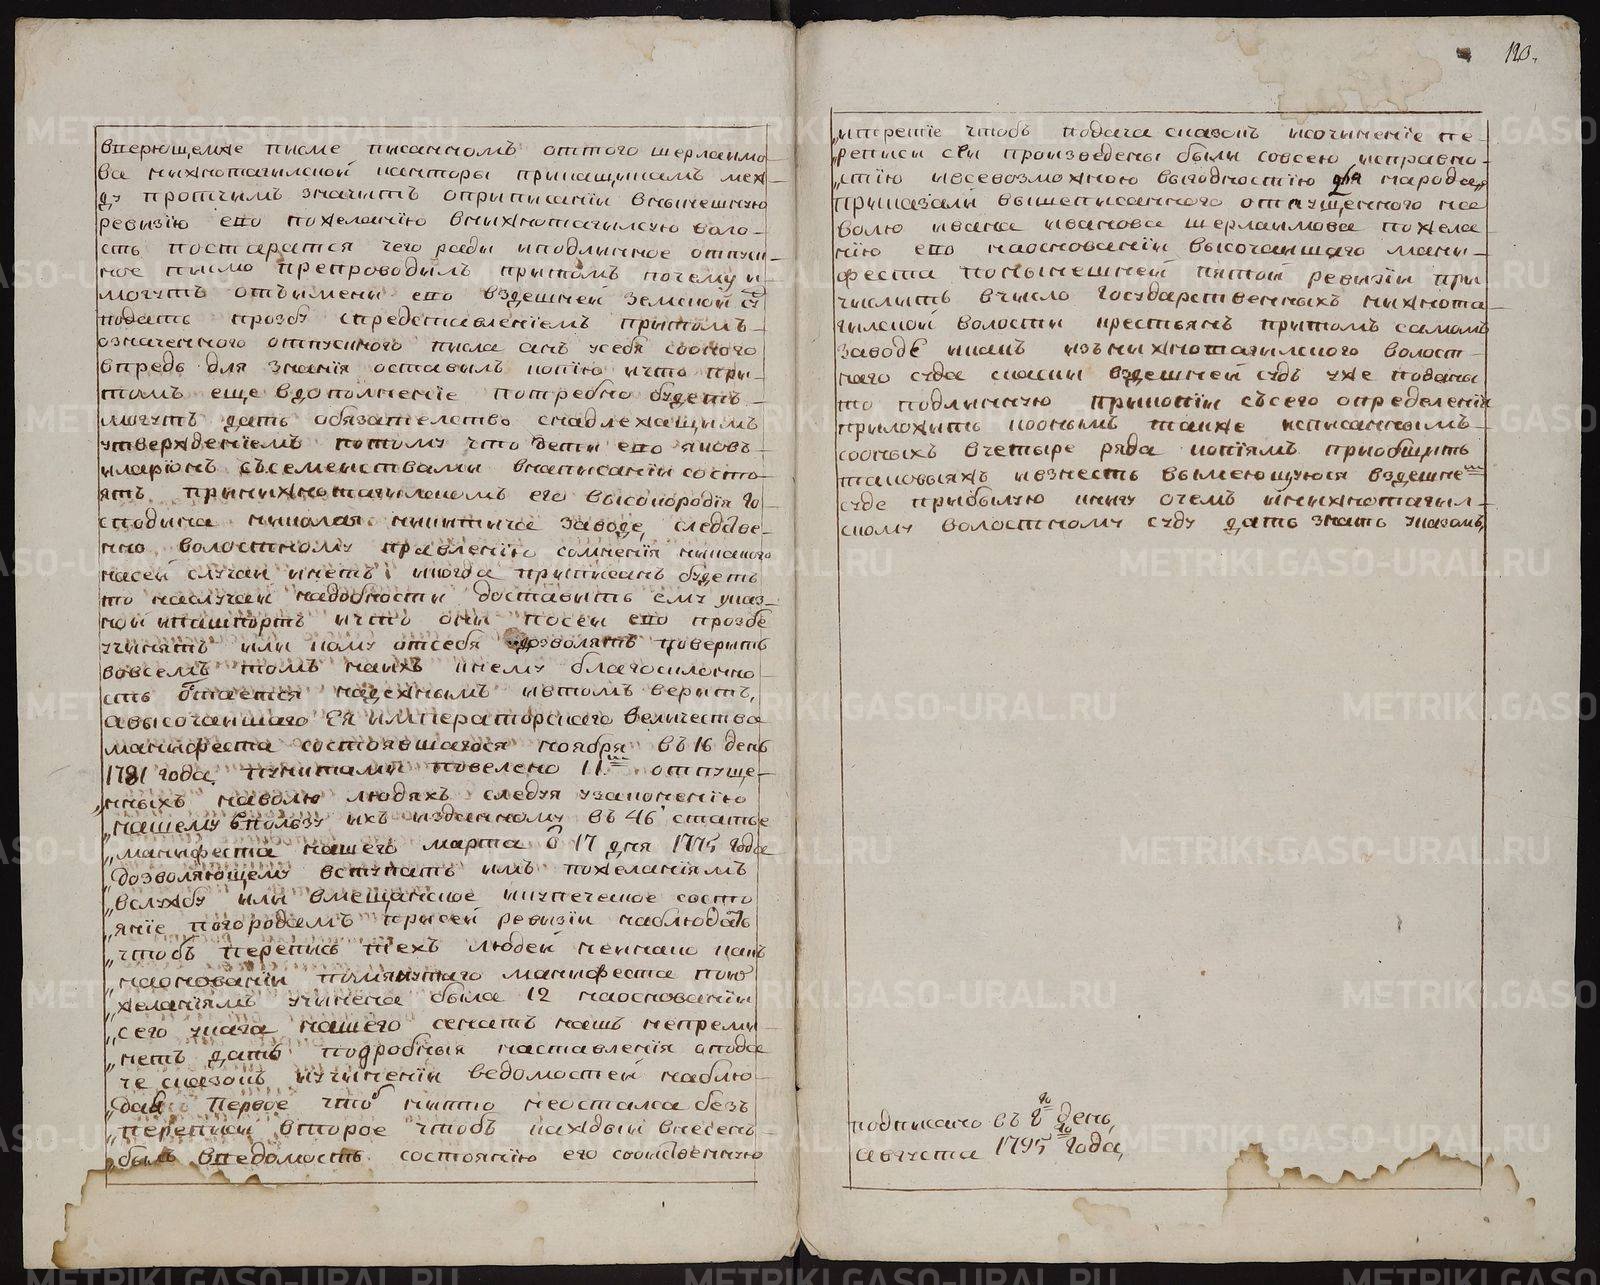 120.
вверющемже писме писанномъ оттого шерлаимо
ва нижнотагилской канторы прикащикамъ меж
ду протчимъ значитъ оприписании внынешнюю
ревизію его пожеланію внижнотагилскую воло
сть постаратся чего ради иподлинное отпуск
ное писмо препроводилъ притомъ почему и
могутъ отъимени его вздешней земской су
подать прозбу спредставлениемъ притомъ
означенного отпускного писма анъ усебя соонаго
впредь для знания оставилъ копію ичто при
томъ еще вдополнение потребно будетъ
могутъ дать обязателство снадлежащимъ
утвержденіемъ потому что дети его яковъ
иларионъ съсемействами внаписании состо
ятъ принижнотагилскомъ его высокородія го
сподина николая никитича заводе, следстве
нно волостному правлению сомнения никакого
насей случай иметь, иногда приписанъ будетъ
то наслучай надобности доставить ему указ
ной ипашпортъ ичто они посей его прозбе
учинятъ или кому отсебя дозволятъ поверить
вовсемъ томъ наихъ кнему благосклонно
сть остается надежнымъ ивтомъ веритъ,
авысочайшаго Ея императорскаго величества
манифеста состоявшагося ноября въ 16 день
1781 года пунктами повелено 11м отпуще
„нныхъ наволю людяхъ следуя узаконению
„нашему впользу ихъ изданному въ 46 статье
„манифеста нашего марта 17 дня 1775 года
„дозволяющему вступать имъ пожеланіямъ
„вслужбу или вмещанское икупеческое состо
„яние погородамъ присей ревизии наблюдать
„чтобъ перепись техъ людей неинако какъ
„наосновании помянутаго манифеста поих
„желаніямъ учинена была 12 наосновании
„сего указа нашего сенатъ нашъ непреми
„нетъ дать подробныя наставления оподa
че сказокъ иучинении ведомостей наблю
„дая первое чтоб никто неостался безъ
„переписи второе чтобъ каждый внесенъ
„былъ введомость состоянию его соответственную
„итретие чтобъ подача сказокъ исочинение пе
„реписи сей произведены были совсею исправно
„стию ивсевозможною выгодностию для народа„
приказали вышеписанного отпущенного на
волю ивана иванова шерлаимова пожела
нию его наосновании высочайшаго мани
феста понынешней пятой ревизии при
числить вчисло государственныхъ нижнота
гилской волости крестьянъ притомъ самомъ
заводе икакъ изънижнотагилского волост
наго суда сказки вздешней судъ уже поданы
то подлинную прикопии съсего определения
приложить кооным также исписаннымъ
сооныхъ вчетыре ряда копиямъ приобщить
таковыяжъ ивзнесть вымеющуюся вздешнем
суде прибылую книгу очемъ инижнотагил
скому волостному суду дать знать указомъ,
подписано въ 8го день,
августа 1795го года,